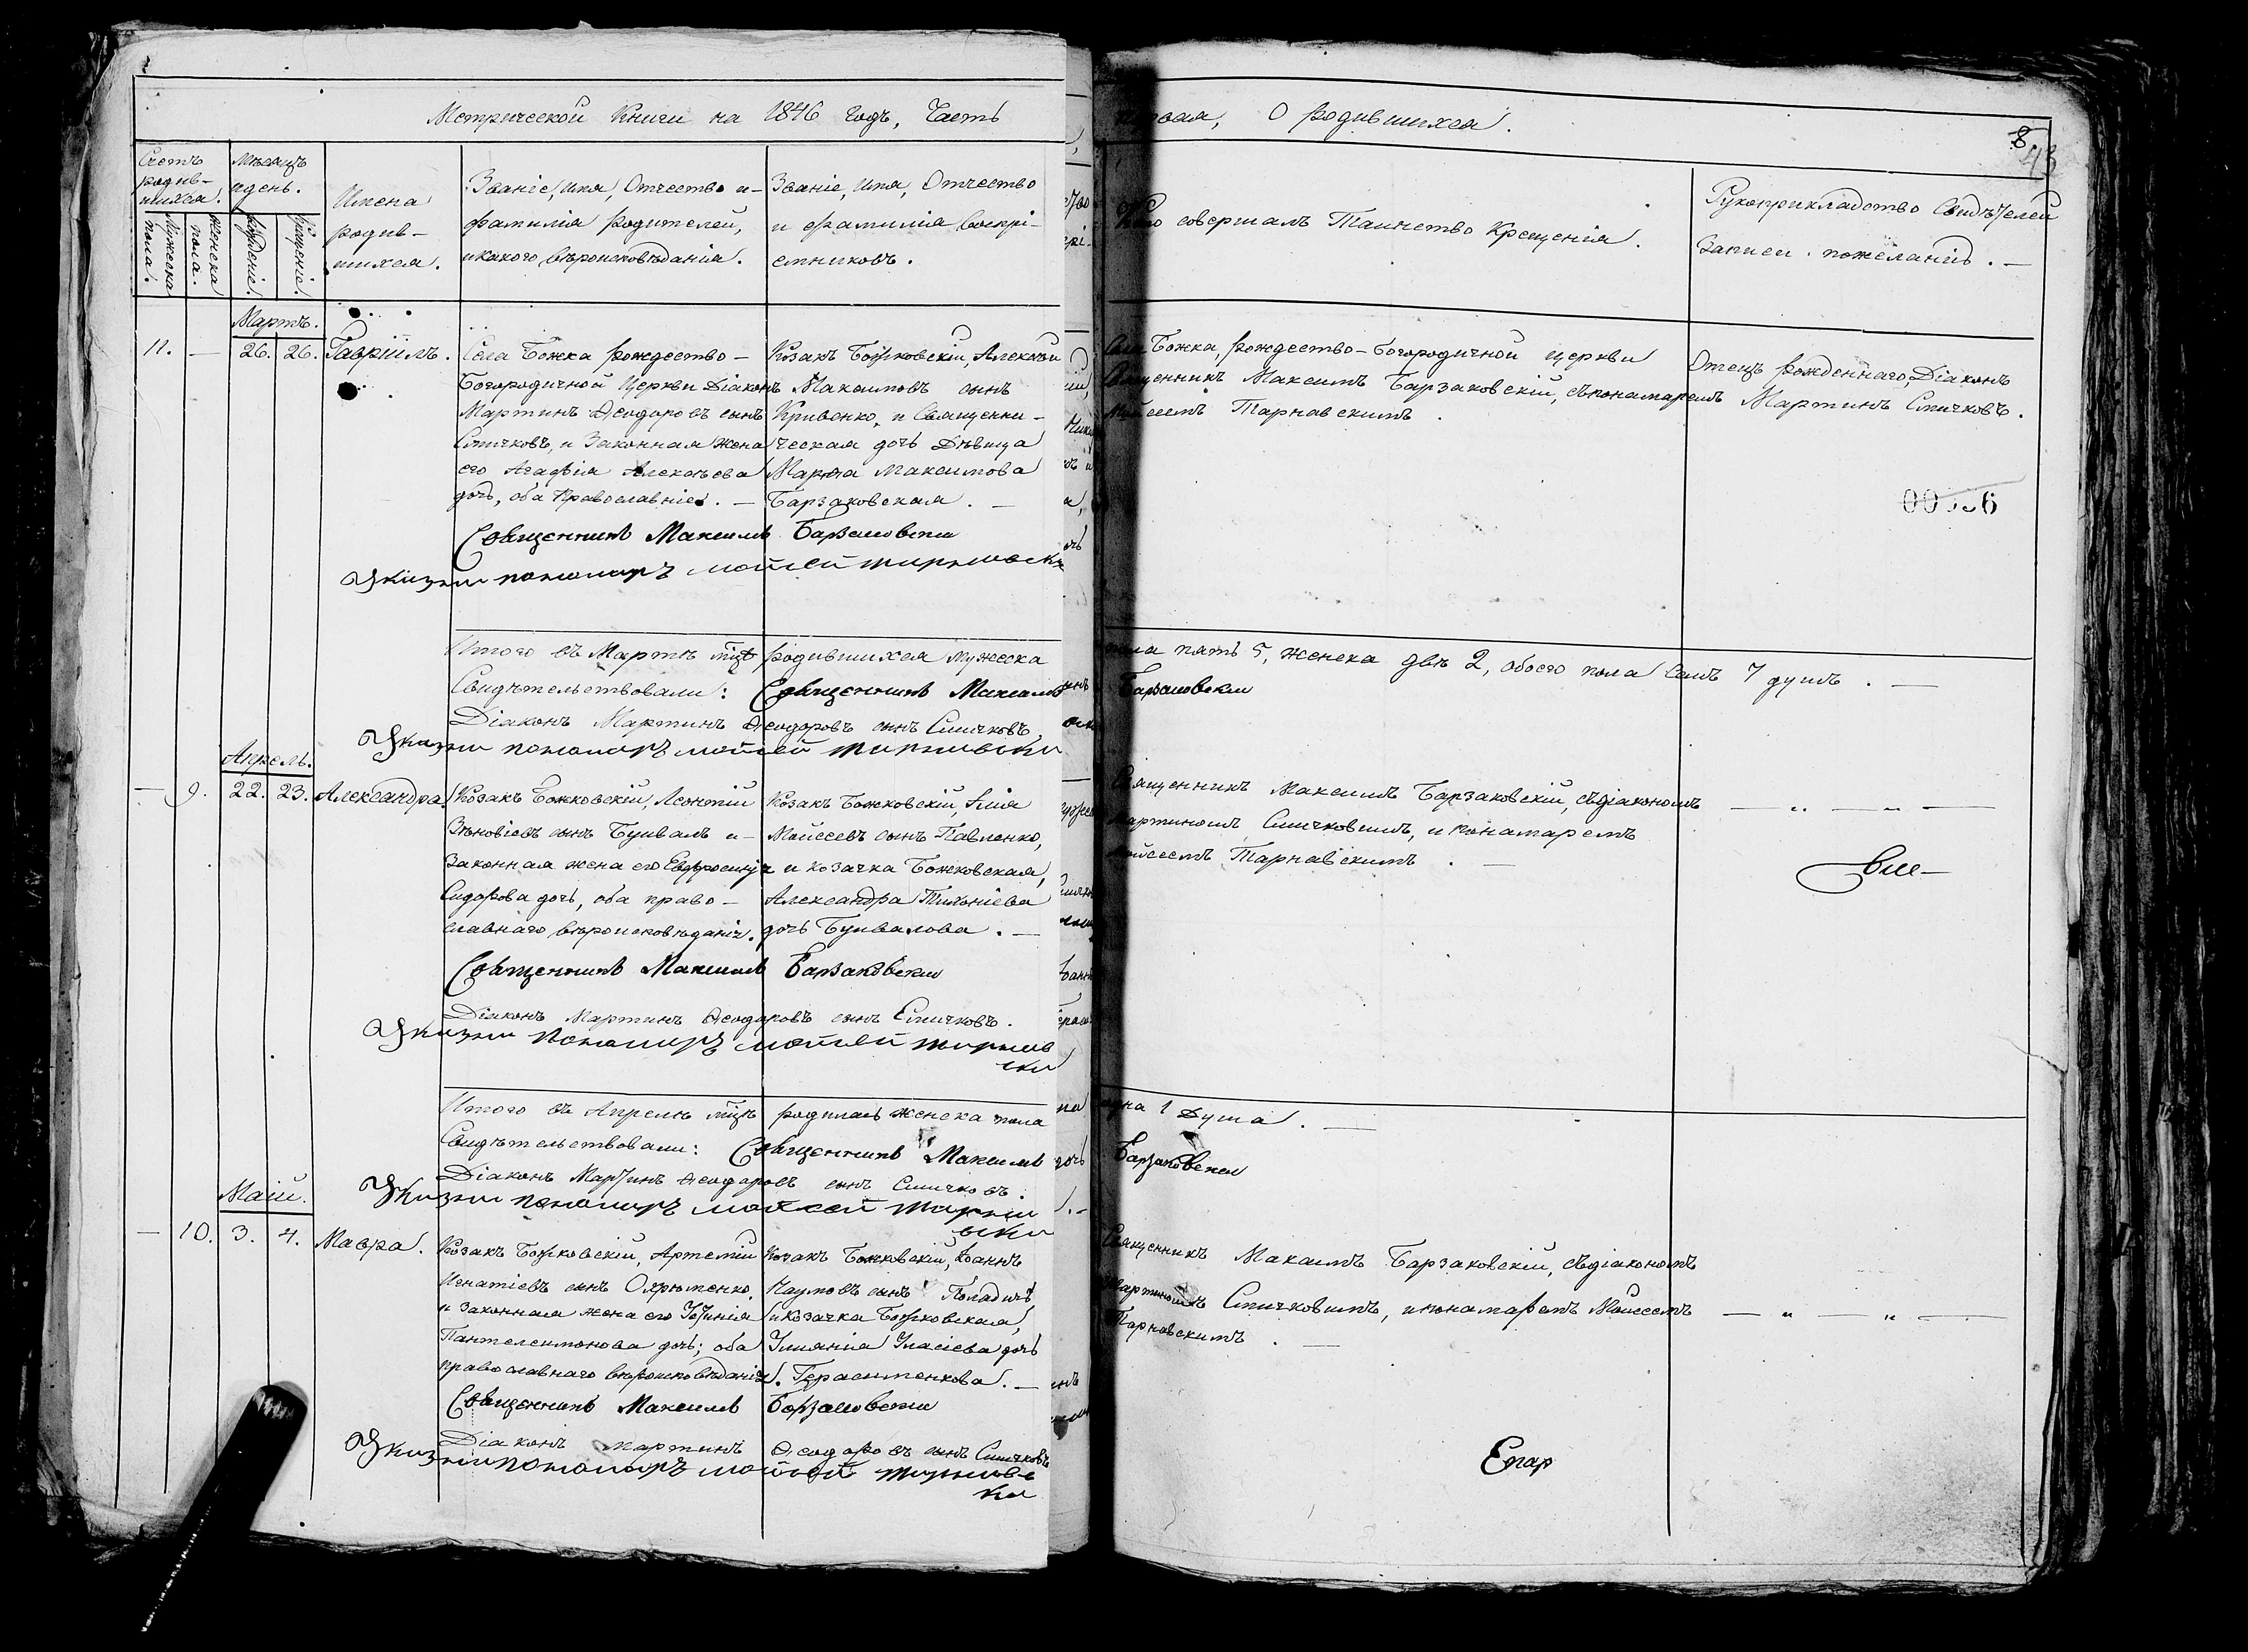 Метрической Книги на 1846 годъ, Часть
первая, О родившихся.
8
43
Счетъ родив-шихся.
Мѣсяцъ и день.
Мужеска пола.
Женска пола.
Рожденіе.
Крещеніе.
Имена
родив-
шихся.
Званіе, имя, отчество и-
фамилія родителей,
и какого вѣроисповѣданія.
Званіе, имя, Отчество
и фамилія Воспрі-
емниковъ.
Кто совершалъ Таинство Крещенія.
Рукоприкладство Свидѣтелей
записи по желанію. —
Мартъ.
11. — 26. 26. Гавріилъ.
Села Божка, рождество-
Богородичной Церкви Діаконъ
Мартинъ Ѳеодоровъ сынъ
Смичковъ, и Законная жена
его Агафія Алексѣева
дочь, оба Православніе. —
Козакъ Божковскій, Алексѣй
Максимовъ сынъ
Кривенко, и Священни-
ческая дочь Дѣвица
Марѳа Максимова
Барзаковская. —
Села Божка, рождество-Богородичной церкви
Священникъ Максимъ Барзаковскій, съ понамаремъ
Мойсеемъ Тарнавскимъ.
Отецъ рожденнаго, Діаконъ
Мартинъ Смичковъ.
Священникъ Максимъ Барзаковски
пономаръ мойсей тарнавски
Итого въ Мартѣ мцѣ родившихся мужеска
пола пять 5, женска двѣ 2, обоего пола семь 7 душъ. —
Свидѣтельствовали: Священникъ Максимъ
Барзаковски
Діаконъ Мартинъ Ѳеодоровъ сынъ Смичковъ
пономаръ мойсей тарнавски
Апрель.
— 9. 22. 23. Александра.
Козакъ Божковскій, Леонтій
Зѣновіевъ сынъ Бунвалъ и-
Законная жена его Евфросинія
Сидорова дочь, оба право-
славнаго вѣроисповѣданія.
Козакъ Божковскій, Илія
Мойсеевъ сынъ Павленко,
и козачка Божковская,
Александра
дочь Бунвалова. —
Священникъ Максимъ Барзаковскій, съ діакономъ
Мартиномъ Смичковимъ, и понамаремъ
Мойсеемъ Тарнавскимъ. —
— „ — „ —
Священникъ Максимъ Барзаковски
Діаконъ Мартинъ Ѳеодоровъ сынъ Смичковъ.
пономаръ мойсей тарнав
ски
Итого въ Апрелѣ мцѣ родилась женска пола
одна 1 Душа. —
Свидѣтельствовали: Священникъ Максимъ
Барзаковски
Діаконъ Мартинъ Ѳеодоровъ сынъ Смичковъ.
пономаръ мойсей тарнав
ски
Маій.
— 10. 3. 4. Мавра.
Козакъ Божковскій, Артемій
Игнатіевъ сынъ Охрименко,
и законная жена его
Пантелеимонова дочь; оба
православнаго вѣроисповѣданія.
Козакъ Божковскій, Іоаннъ
Наумовъ сынъ
и Козачка Божковская,
Уліянія Уласіева дочь
Герасименкова. —
Священникъ Максимъ Барзаковскій, съ діакономъ
Мартиномъ Смичковимъ, и понамаремъ Мойсеемъ
Тарновскимъ. —
— „ — „ —
Священникъ Максимъ Барзаковски
Діаконъ Мартинъ Ѳеодоровъ сынъ Смичковъ
пономаръ мойсей тарнавс
ки
Епар